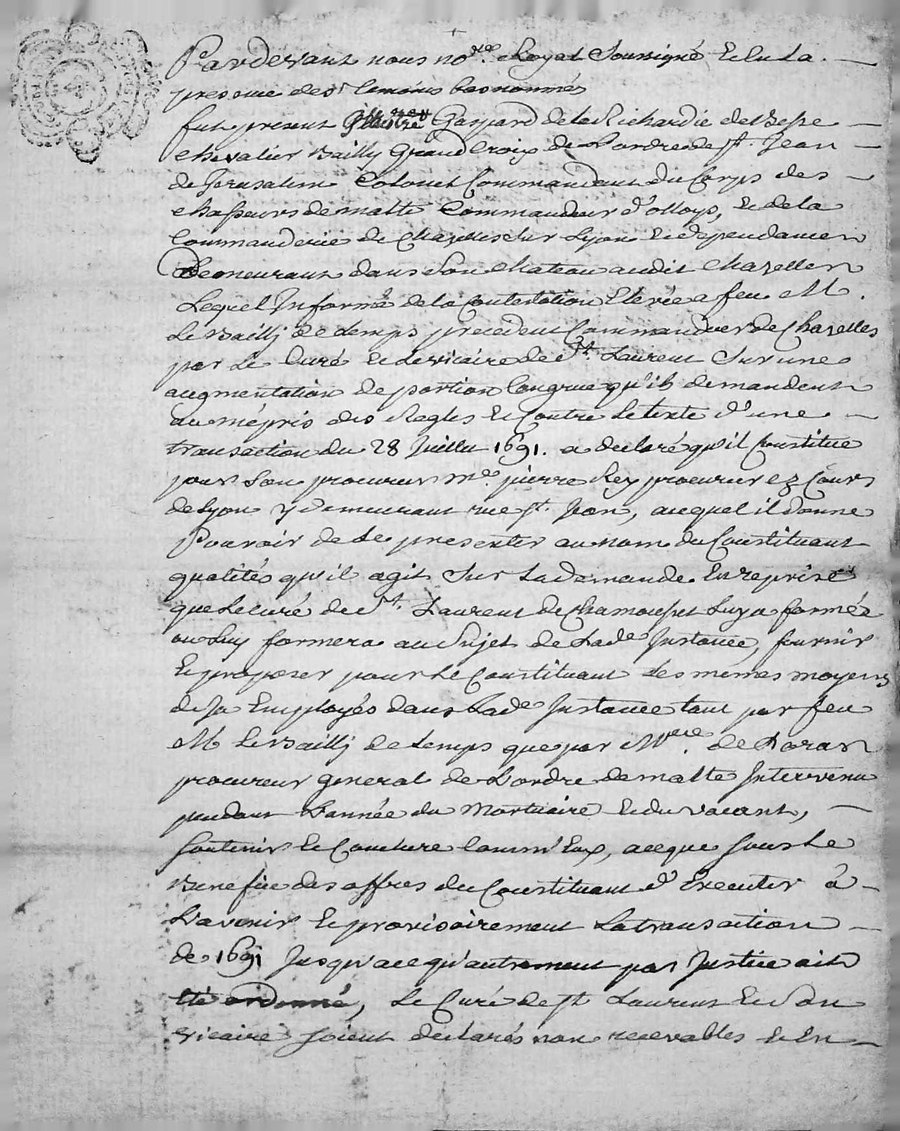 Pardevant nous no.re Royal Soussigné Et en La
presence des temoins basnommés
fut present Gaspard de la Richardie de Besse
chevalier Bailly Grand Croix de L'ordre de St. Jean
de Jerusalem Colonel Commandant du Corps des
chasseurs de malte Commandeur d'olloys, Et de la
Commanderie de Chazelles sur Lyon Et dependances
Demeurant dans son chateau audit chazelles
Lequel Informé de la Contestation Elevée a feu M.
Le Bailly de Lemps precedent Commandeur de Chazelles
par Le Curé Et Le vicaire de St. Laurent Sur une
augmentation de portion Congrue qu'ils demandent
au mépris des Regles Et Contre Le texte d'une
transaction du 28 Juillet 1691. a declaré qu'il Constitue
pour Son procureur me. pierre Rey procureur ez Cours
de Lyon y demeurant rue St. Jean, auquel il donne
Pouvoir de Se presenter au nom du Constituant
qualités qu'il agit Sur La demande En reprise
que Le curé de St. Laurent de Chamousset Luy a formée
ou Luy formera au Sujet de Lade Instance, fournir
Et proposer pour Le Constituant Les memes moyens
deja Employés dans Lade Instance tant par feu
M Le Bailly de Lemps que par Mre. de
procureur general de L'ordre de malte Intervenu
pendant L'année du Mortuaire Et du vacant,
soutenir Et Conclure Comm'Eux, a ce que sous Le
Benefice des offres du Constituant d'Executer à
L'avenir Et provisoirement La transaction
de 1691 Jusqu'a ce qu'autrement par Justice ait
eté ordonné, Le Curé de St Laurent Et Son
vicaire soient declarés non recevables Et En